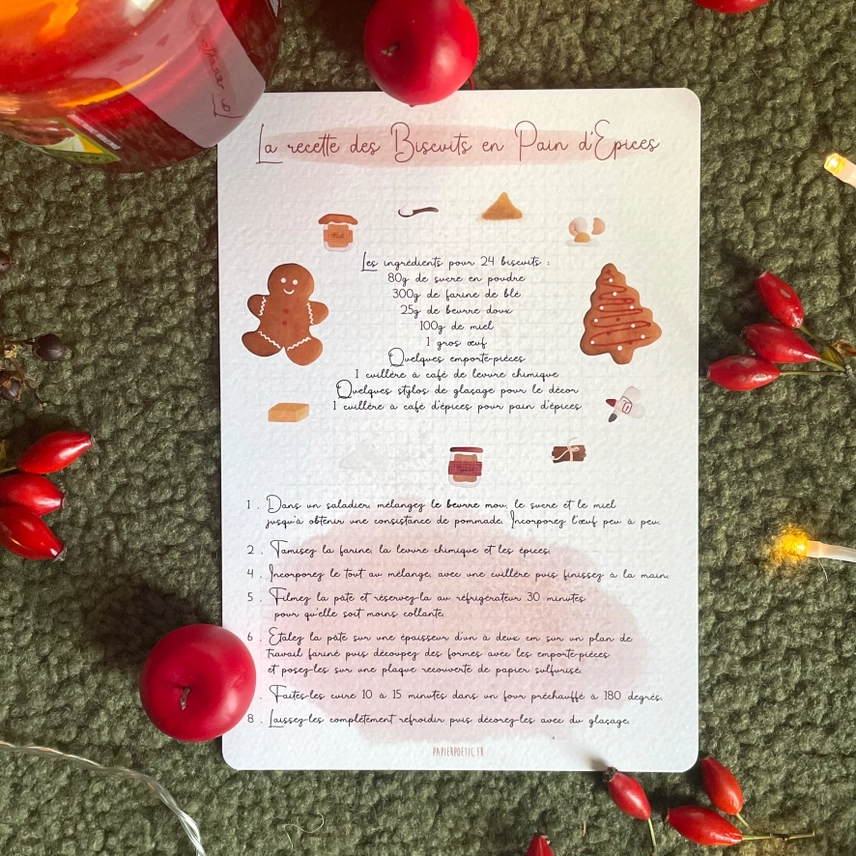 La recette des Biscuits en Pain d'Epices
Miel
Les ingrédients pour 24 biscuits :
80g de sucre en poudre
300g de farine de blé
25g de beurre doux
100g de miel
1 gros œuf
Quelques emporte-pièces
1 cuillère à café de levure chimique
Quelques stylos de glaçage pour le décor
1 cuillère à café d'épices pour pain d'épices
1 . Dans un saladier, mélangez le beurre mou, le sucre et le miel
jusqu'à obtenir une consistance de pommade. Incorporez l'œuf peu à peu.
2 . Tamisez la farine, la levure chimique et les épices.
4 . Incorporez le tout au mélange, avec une cuillère puis finissez à la main.
5 . Filmez la pâte et réservez-la au réfrigérateur 30 minutes
pour qu'elle soit moins collante.
6 . Etalez la pâte sur une épaisseur d'un à deux cm sur un plan de
travail fariné puis découpez des formes avec les emporte-pièces
et posez-les sur une plaque recouverte de papier sulfurisé.
. Faites-les cuire 10 à 15 minutes dans un four préchauffé à 180 degrés.
8 . Laissez-les complètement refroidir puis décorez-les avec du glaçage.
PAPIERPOETIC.FR